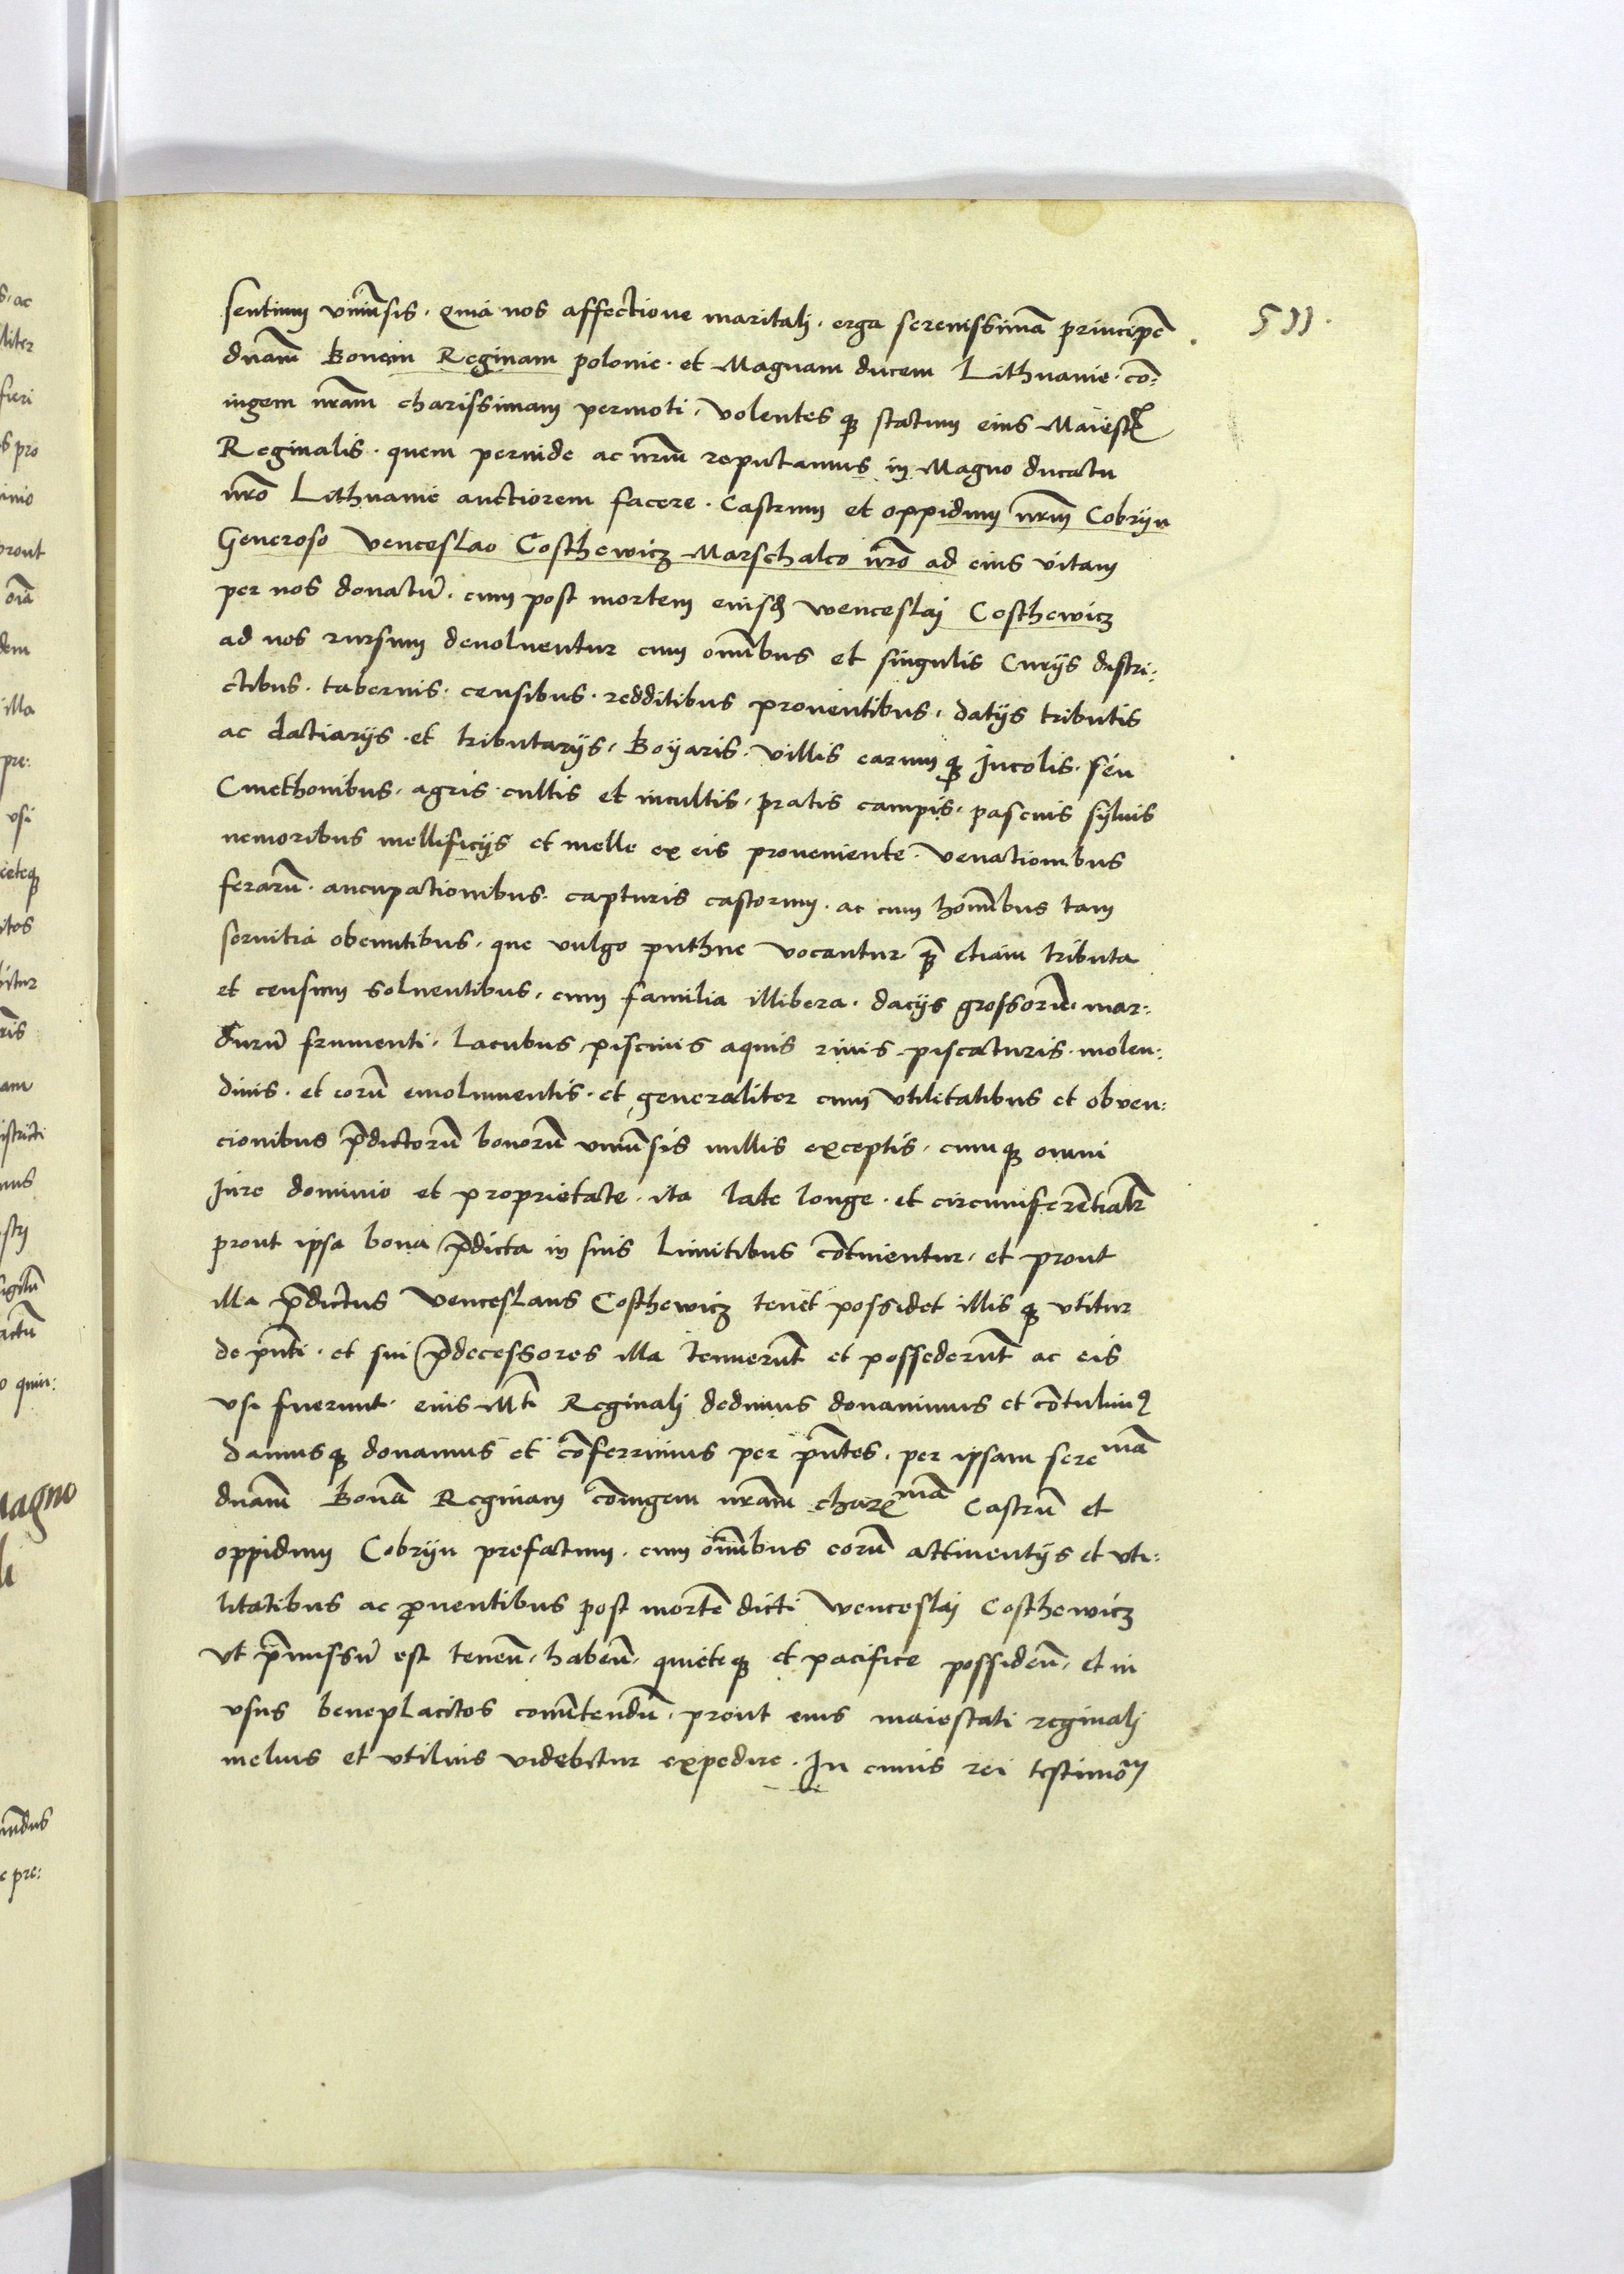 511.
sentium vniuẽsis. Quia nos affectione maritalj. erga serenissimã principẽ
dnam̃ Bonam Reginam polonie. et Magnam ducem Lithuanie. cõ:
iugem nr̃am charissimam permoti. Volentesqȝ statum eius Maiestꝭ
Reginalis. quem perinde ac nr̃m reputamus in Magno ducatu
nr̃o Lithuanie auctiorem facere. Castrum et oppidum nr̃m Cobryn
Generoso Venceslao Costhewicz Marschalco nr̃o ad eius vitam
per nos donatũ. cum post mortem eiusdẽ wenceslaj Costhewicz
ad nos rursum deuoluentur cum om̃ibus et singulis Curijs distri:
ctibus. tabernis. censibus. redditibus prouentibus. datijs tributis
ac datiarijs. et tributarijs. Boyaris. villis earumqȝ Incolis. seu
Cmethonibus. agris cultis et incultis. pratis campis. pascuis syluis
nemoribus mellificijs et melle ex eis proueniente. venationibus
ferarũ. aucupationibus. capturis castorum. ac cum hom̃ibus tam
seruitia obeuntibus. que vulgo puthne vocantur. qȝ etiam tributa
et censum soluentibus. cum familia illibera. dacijs grossorũ. mar:
durũ frumenti. Lacubus piscinis aquis riuis piscaturis. molen:
dinis. et eorũ emolumentis. et generaliter cum vtilitatibus et obuen:
cionibus p̃dictorũ bonorũ vniuẽsis nullis exceptis. cumqȝ omni
Jure dominio et proprietate. ita late longe. et circumferẽtialr̃
prout ipsa bona p̃dicta in suis Limitibus cõtinentur. et prout
illa p̃dictus Venceslaus Costhewicz tenet possidet illisqȝ vtitur
de pñti. et sui p̃decessores illa tenuerũt et possederũt ac eis
vsi fuerunt. eius Mti Reginalj dedimus donauimus et cõtulimꝯ
damusqȝ donamus et cõferrimus per pñtes. per ipsam sereⁿᵐᵃ̃
dnam̃ Bonã Reginam cõiugem nr̃am charᵐᵃ̃ Castrũ et
oppidum Cobryn prefatum. cum om̃ibus eorũ attinentijs et vti:
litatibus ac ꝓuentibus post mortẽ dicti Wenceslaj Costhewicz
vt p̃missũ est tenen̄. haben̄. quieteqȝ et pacifice possiden̄. et in
vsus beneplacitos conũtendũ. prout eius maiestati reginalj
melius et vtilius videbitur expedire. In cuius rei testimõ